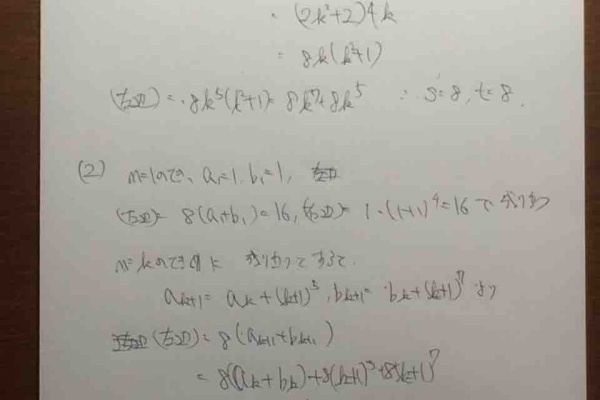 = (2k²+2)4k
= 8k(k²+1)
(右辺) = 8k⁵(k²+1) = 8k⁷+8k⁵ ∴ s=8, t=8.
(2) n=1のとき、a₁=1, b₁=1,
(左辺)= 8(a₁+b₁)=16, (右辺)= 1・(1+1)⁴=16 で成り立つ
n=kのとき 成り立つとすると、
aₖ₊₁= aₖ+(k+1)⁵, bₖ₊₁= bₖ+(k+1)⁷ より
(左辺)= 8(aₖ₊₁+bₖ₊₁)
= 8(aₖ+bₖ)+8(k+1)⁵+8(k+1)⁷